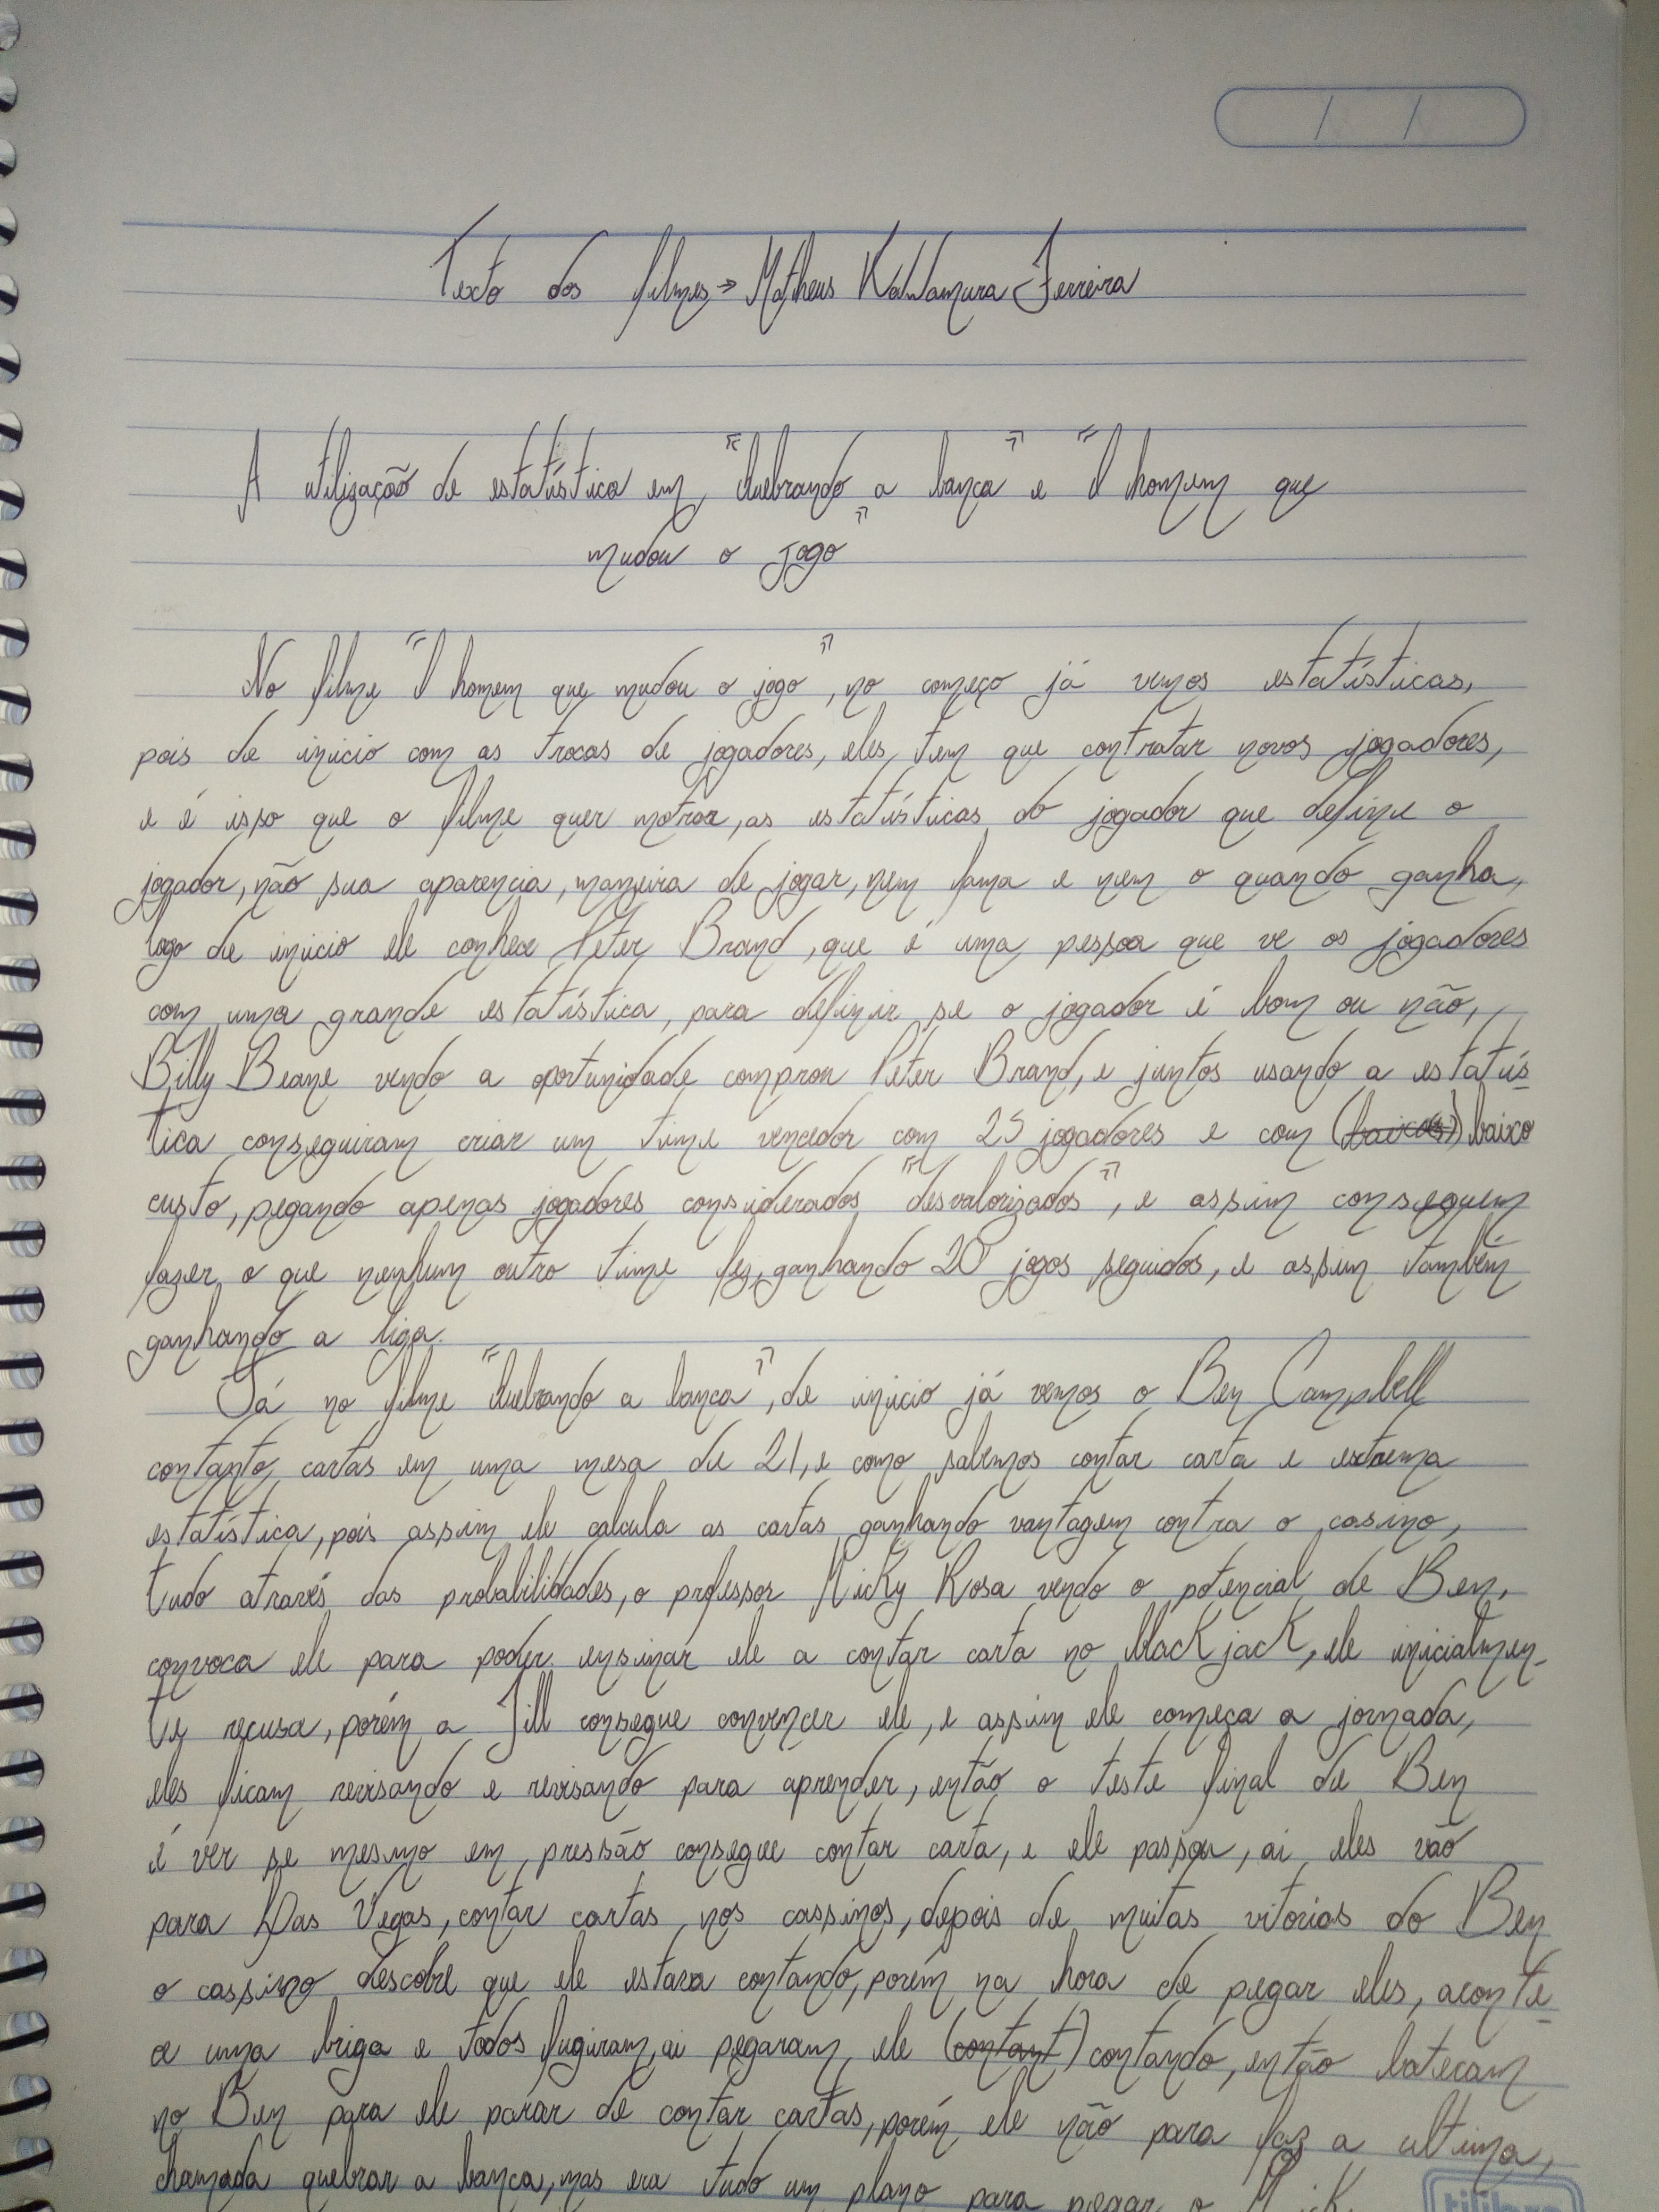 Texto dos filmes → Matheus Kawamura Ferreira
A utilização de estatística em "Quebrando a banca" e "O homem que
mudou o jogo"
No filme "O homem que mudou o jogo", no começo já vemos estatísticas,
pois de inicio com as trocas de jogadores, eles tem que contratar novos jogadores,
e é isso que o filme quer motrar, as estatísticas do jogador que define o
jogador, não sua aparencia, maneira de jogar, nem fama e nem o quando ganha,
logo de inicio ele conhece Peter Brand, que é uma pessoa que ve os jogadores
com uma grande estatística, para definir se o jogador é bom ou não,
Billy Beane vendo a oportunidade comprou Peter Brand, e juntos usando a estatís-
tica conseguiram criar um time vencedor com 25 jogadores e com (baixos) baixo
custo, pegando apenas jogadores considerados "desvalorizados", e assim conseguem
fazer o que nenhum outro time fez, ganhando 20 jogos seguidos, e assim também
ganhando a liga.
Já no filme "Quebrando a banca", de inicio já vemos o Ben Campbell
contanto cartas em uma mesa de 21, e como sabemos contar carta e extrema
estatística, pois assim ele calcula as cartas ganhando vantagem contra o casino,
tudo através das probabilidades, o professor Micky Rosa vendo o potencial de Ben,
convoca ele para poder ensinar ele a contar carta no black jack, ele inicialmen-
te recusa, porém a Jill consegue convencer ele, e assim ele começa a jornada,
eles ficam revisando e revisando para aprender, então o teste final de Ben
é ver se mesmo em pressão consegue contar carta, e ele passou, ai eles vão
para Las Vegas, contar cartas nos cassinos, depois de muitas vitorias do Ben
o cassino descobre que ele estava contando, porém na hora de pegar eles, aconte-
ce uma briga e todos fugiram, ai pegaram ele (contant) contando, então bateram
no Ben para ele parar de contar cartas, porém ele não para faz a ultima,
chamada quebrar a banca, mas era tudo um plano para pegar o Mick
tilibra